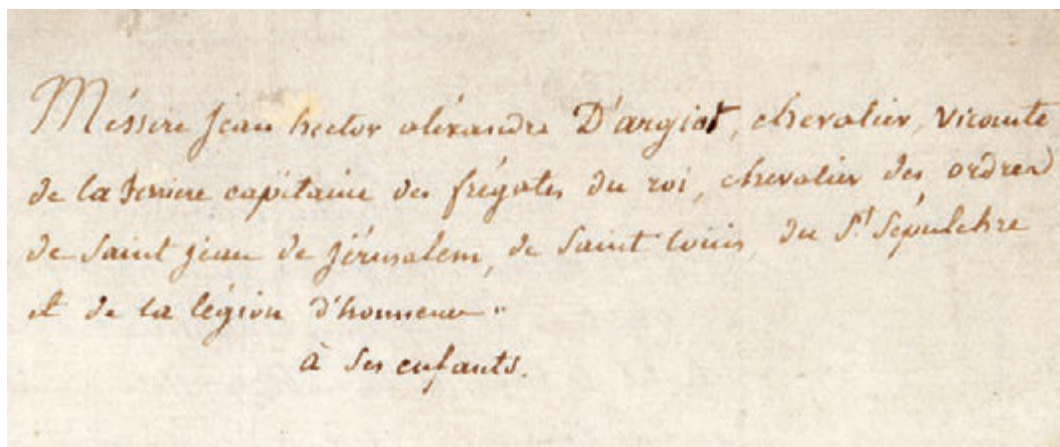 Méssire Jean hector aléxandre D'argiot, chevalier, Vicomte
de la ferriere capitaine des frégates du roi, chevalier des ordres
de saint jean de jérusalem, de saint Louis, du St Sépulchre
et de la légion d'honneur
à ses enfants.